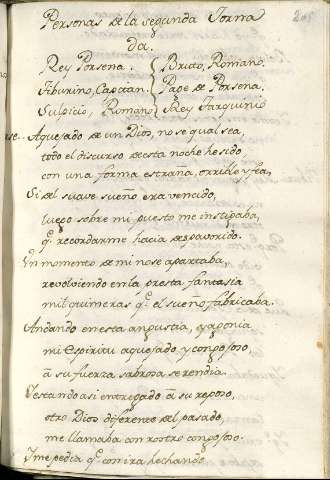 Personas de la segunda Jorna
da.
205
Rey Porsena.
Tiburino, Capitan.
Sulpicio, Romano
Bruto, Romano.
Page de Porsena.
Rey Tarquinio
Aquejado de un Dios, no se qual sea,
todo el discurso de esta noche he sido,
con una forma estraña, orrible y fea,
Si del suave sueño era vencido,
luego sobre mi puesto me instigaba,
q.e recordarme hacia despavorido.
Un momento de mi no se apartaba,
revolviendo en la presta fantasia
mil quimeras q.e el sueño fabricaba.
Andando en esta angustia, y agonia
mi Espiritu aquejado y congojoso,
a su fuerza sabrosa se rendia.
Y estando asi entregado a su reposo,
otro Dios diferente del pasado,
me llamaba con rostro congojoso.
Y me pedia q.e con ira hechando